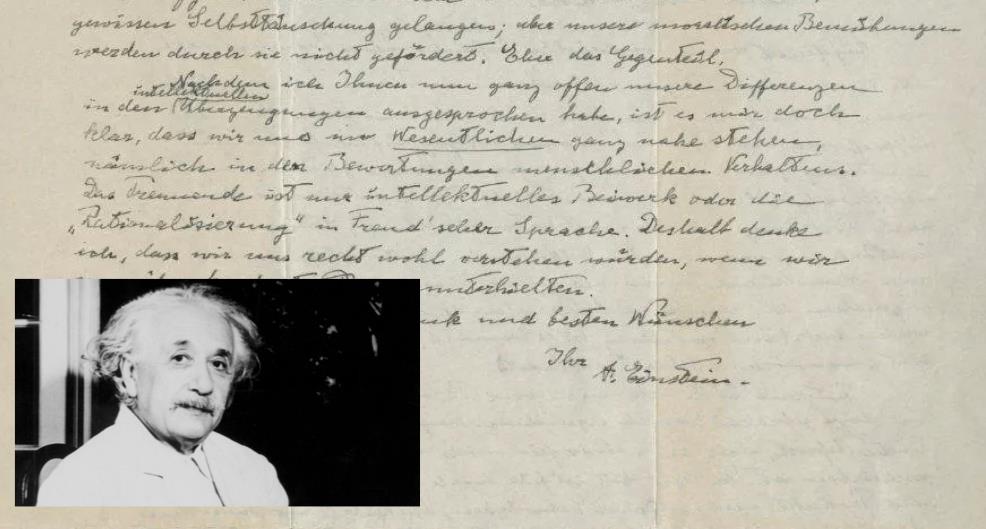 gewissen Selbsttäuschung gelangen; aber unsere moralischen Bemühungen
werden durch sie nicht gefördert. Eher das Gegenteil.
Nachdem ich Ihnen nun ganz offen unsere Differenzen
intellektuellen
in den Überzeugungen ausgesprochen habe, ist es mir doch
klar, dass wir uns im Wesentlichen ganz nahe stehen,
nämlich in den Bewertungen menschlichen Verhaltens.
Das Trennende ist nur intellektuelles Beiwerk oder die
„Rationalisierung" in Freud'scher Sprache. Deshalb denke
ich, dass wir uns recht wohl verstehen würden, wenn wir
unterhielten.
und besten Wünschen
Ihr
A. Einstein.